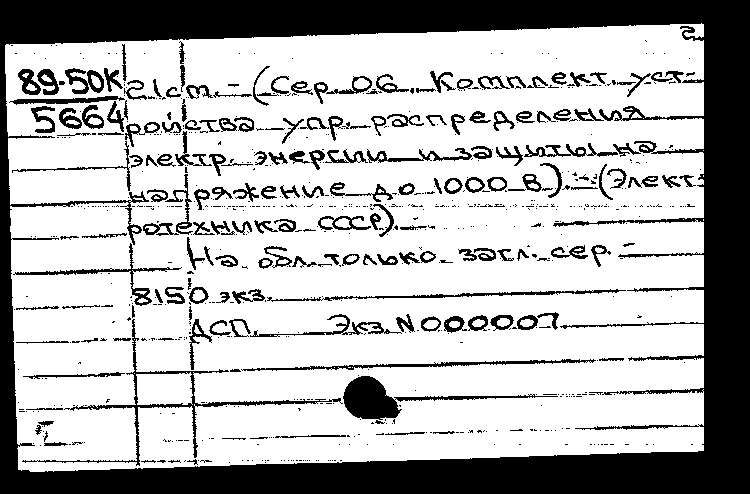 2
89-50К 21cm. - (Сер. 06. Комплект. уст-
5664 ройства упр. распределения
электр. энергии и защиты на
напряжение до 1000 В). - (Элект-
ротехника СССР). -
На обл. только загл. сер. -
8150 экз.
ДСП. Экз. N000007.